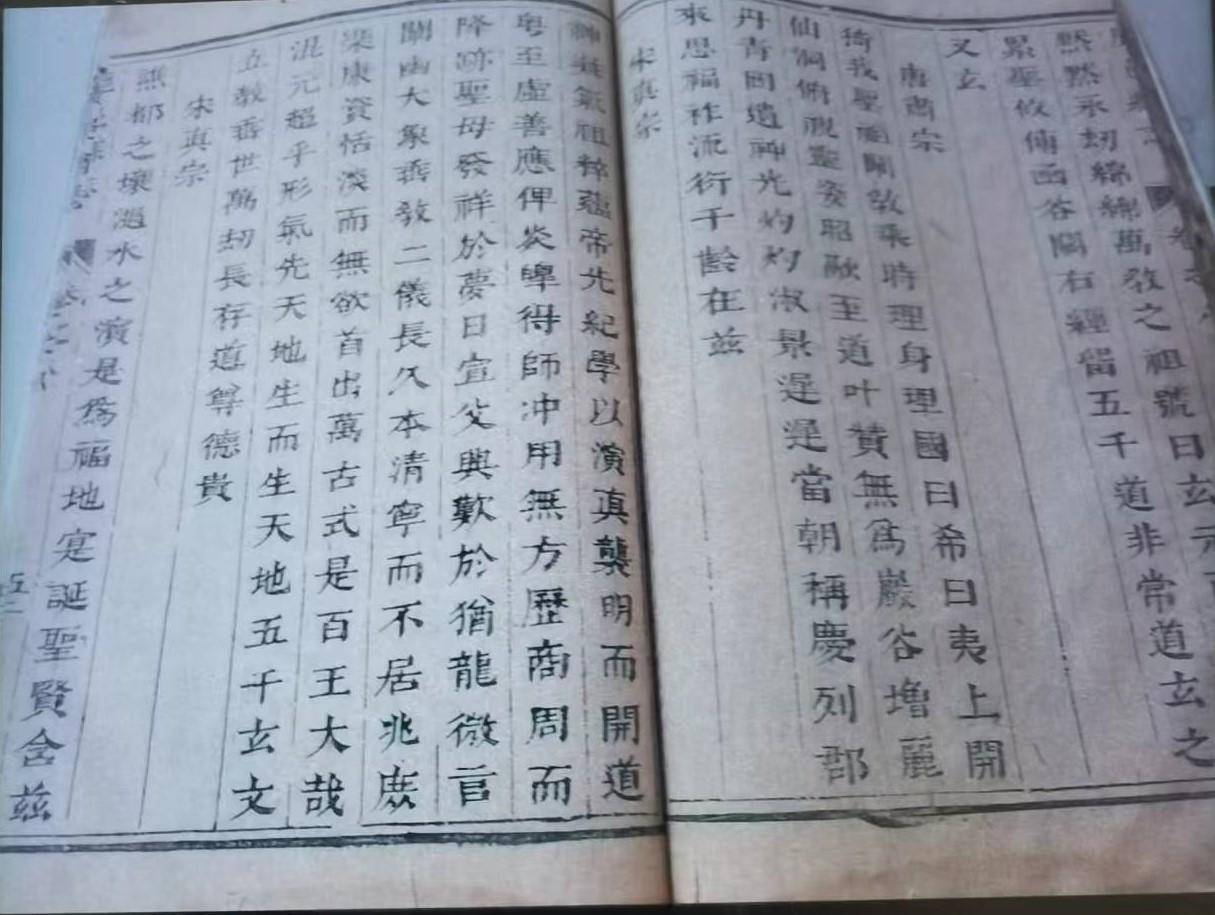 默默永劫綿綿萬教之祖號曰玄元
累聖攸傳函谷關右經留五千道非常道玄之
又玄
唐肅宗
猗我聖祖闡敎乘時理身理國曰希曰夷上開
仙洞俯視靈姿昭融至道叶贊無爲巖谷增麗
丹青同遺神光灼灼淑景遲遲當朝稱慶列郡
來思福祚流衍千齡在兹
宋真宗
氣祖粹蘊帝先紀學以演真襲明而開道
粤至虛善應俾炎皥得師冲用無方歷商周而
降跡聖母發祥於夢日宣父興歎於猶龍微言
闡幽大象垂敎二儀長久本清寧而不居兆庶
樂康資恬淡而無欲首出萬古式是百王大哉
混元超乎形氣先天地生而生天地五千玄文
立敎垂世萬劫長存道尊德貴
宋真宗
譙郡之壤渦水之濱是爲福地寔誕聖賢含兹